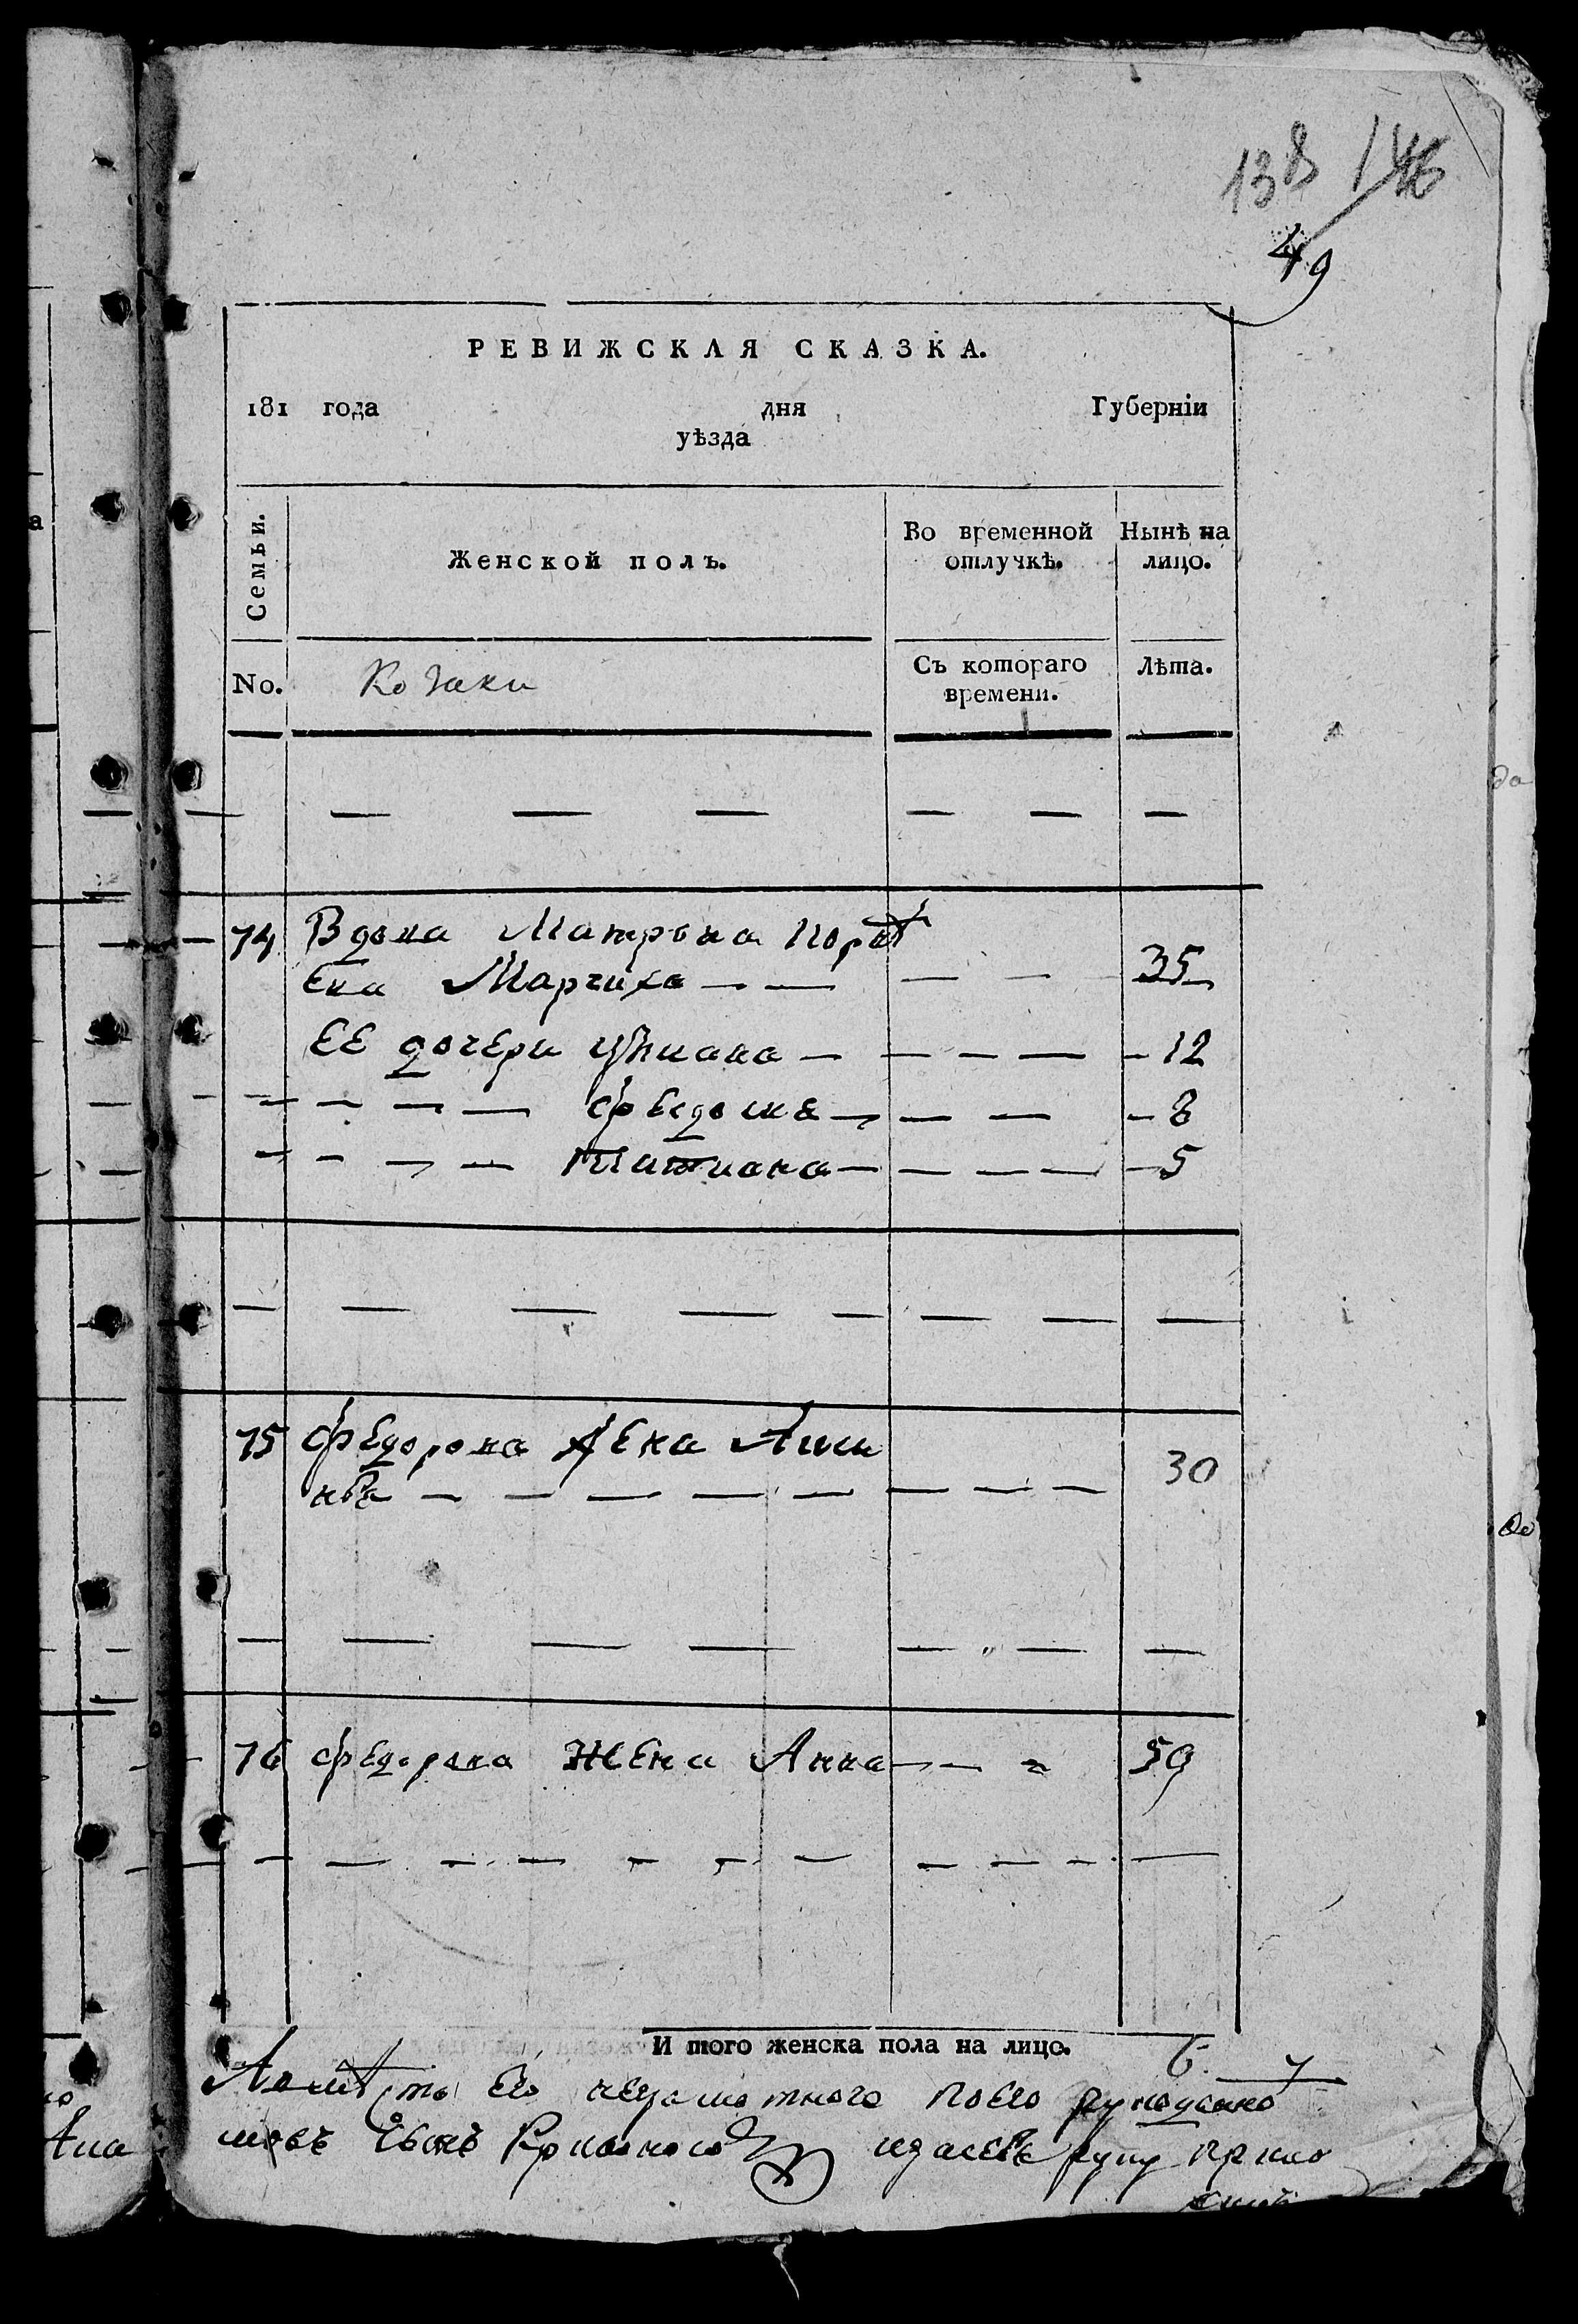 138 146
49
РЕВИЖСКАЯ СКАЗКА.
181 года дня Губерніи
уѣзда
Семьи. Женской полъ. Во временной отлучкѣ. Нынѣ на лицо.
No. Козаки Съ котораго времени. Лѣта.
74 Вдова Матрона
ева Марчиха 35
ЕЕ дочери Улиана 12
Федосия 8
Татиана 5
75 Федорова жена Агри
30
76 Федорова жена Анна 59
И того женска пола на лицо. 6
его неграмотного по его
сынъ за себе руку прило
жилъ